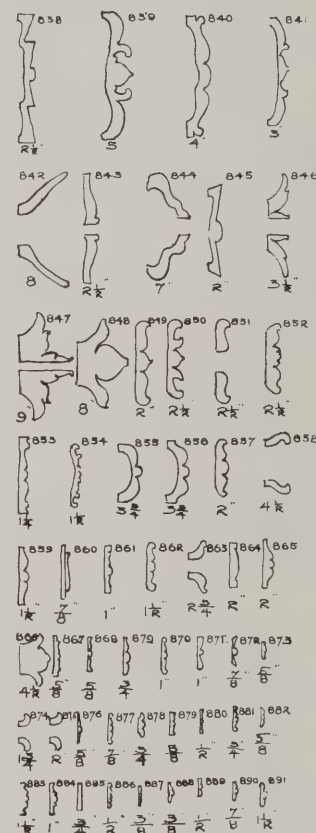 838 839 840 841
2½" 5 4" 3"
842 843 844 845 846
8 2½" 7" 2" 3½"
847 848 849 850 851 852
9" 8" 2" 2½" 2½" 2½"
853 854 855 856 857 858
1½ 3¾ 3¾ 2" 4½
859 860 861 862 863 864 865
1½" ⅞" 1" 1½" 2¾ 2" 2"
866 867 868 879 870 871 872 873
4½ ⅝" ⅝ ¾ 1" 1" ⅞" ⅝"
874 876 877 878 879 880 881 882
1¾ 2 ⅝ ⅞ ¾ ⅝ ½" ¾" ⅝
885 884 885 886 887 888 889 890 891
1" ¾ ½ ⅜ ⅜ ½ ⅞ 1½